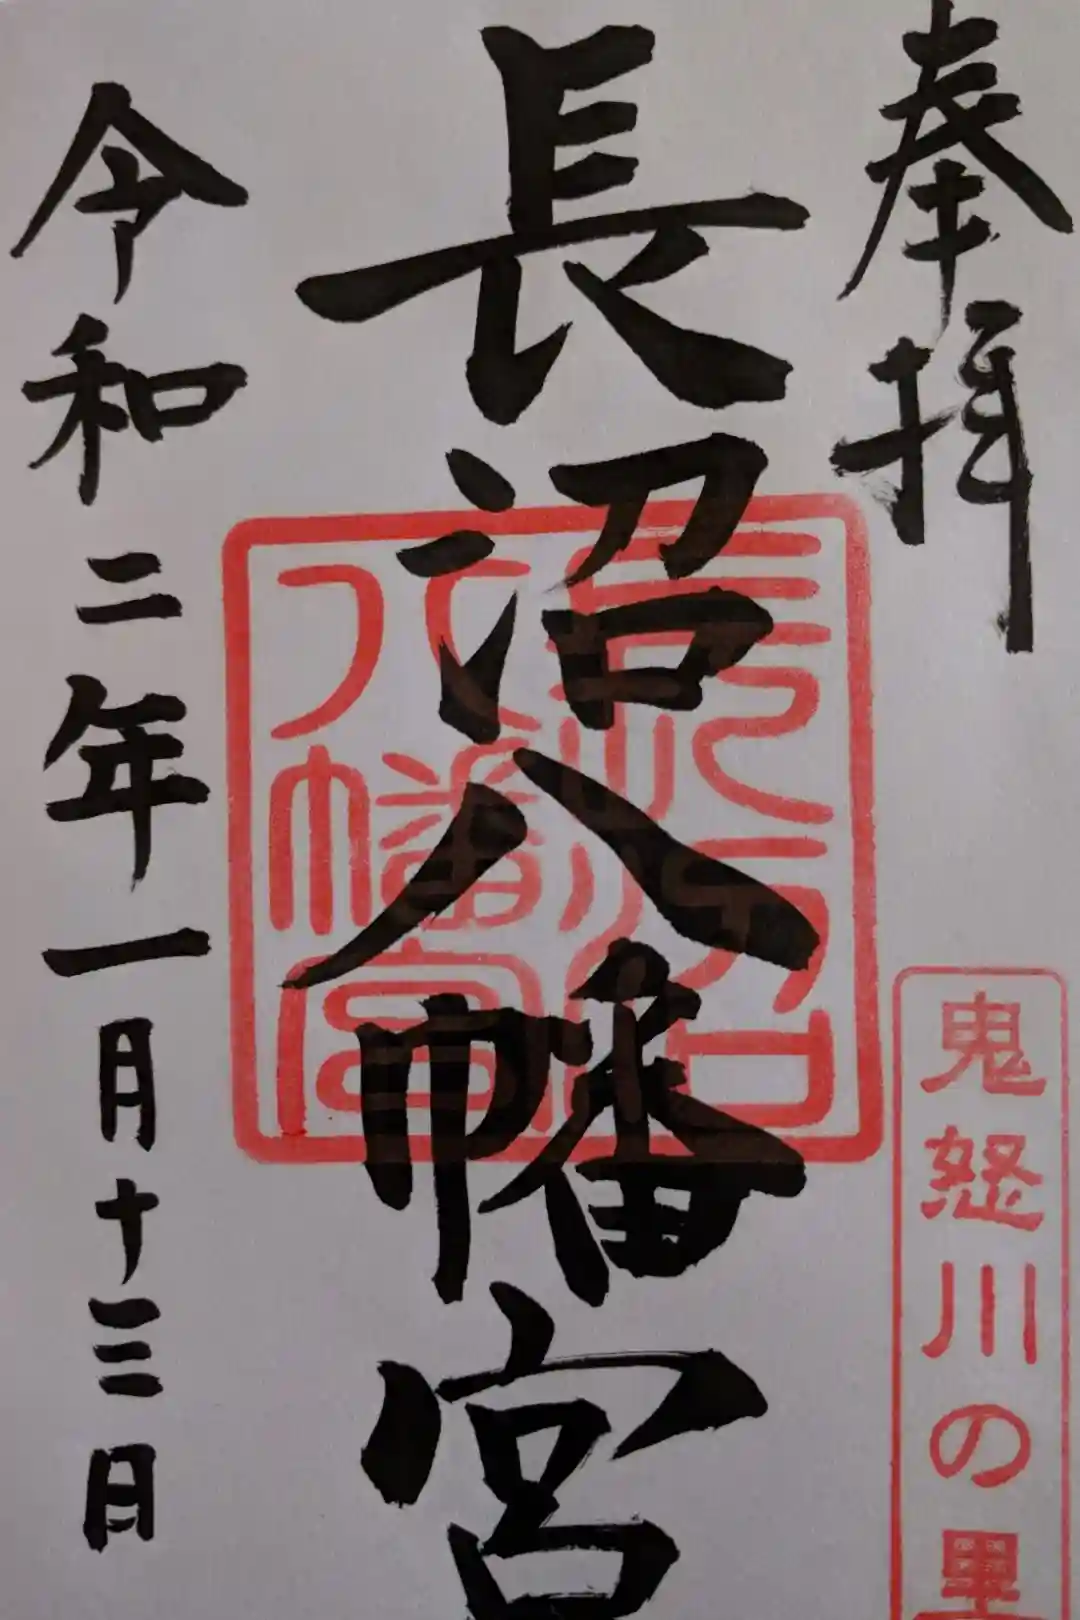 奉拝
鬼怒川の里
長沼八幡宮
長沼八幡宮
令和二年一月十三日